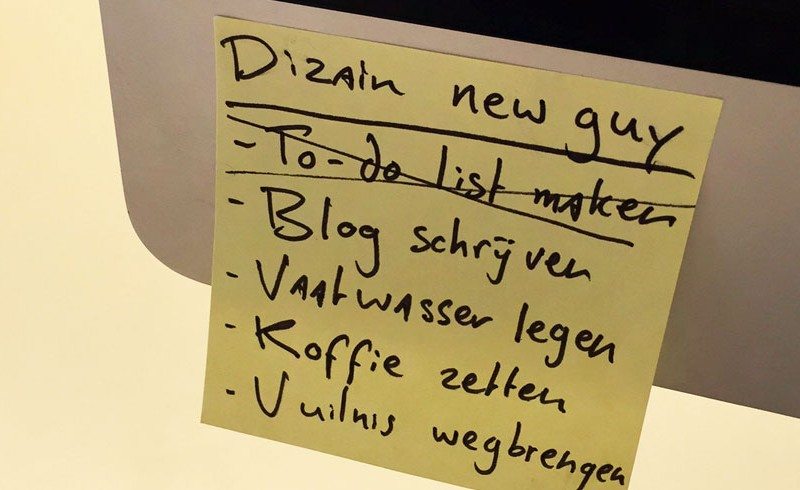 Dizain new guy
- To-do list maken
- Blog schrijven
- Vaatwasser legen
- Koffie zetten
- Vuilnis wegbrengen